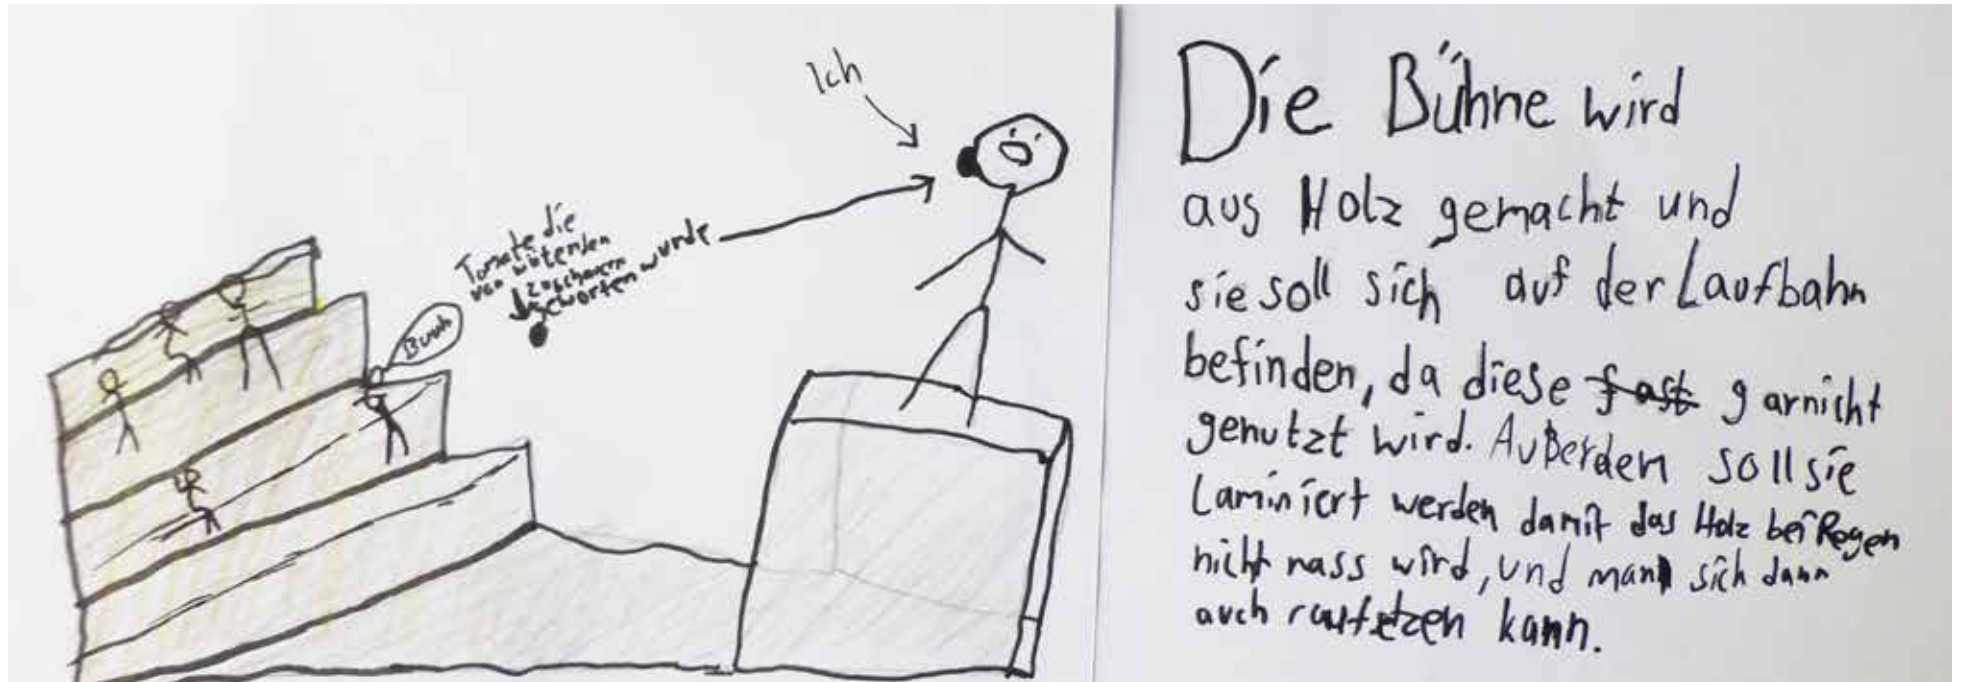 Ich
Tomate die
von wütenden
zuschauern
geworfen wurde
Buuh
Die Bühne wird
aus Holz gemacht und
sie soll sich auf der Laufbahn
befinden, da diese fast garnicht
genutzt wird. Außerdem soll sie
Laminiert werden damit das Holz bei Regen
nicht nass wird, und man sich dann
auch kann.